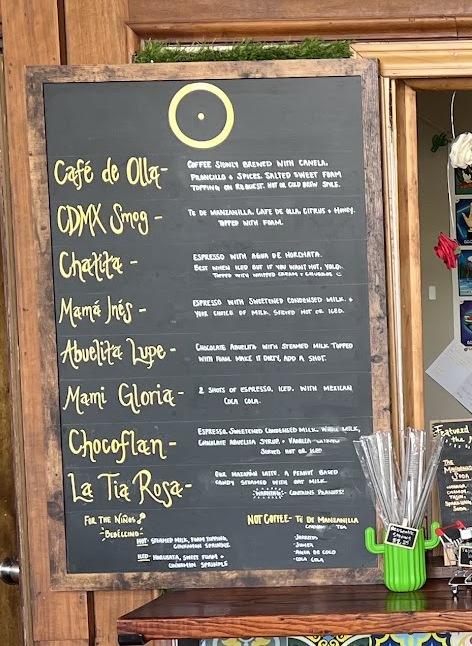 Café de Olla-
COFFEE SLOWLY BREWED WITH CANELA,
PILONCILLO + SPICES. SALTED SWEET FOAM
TOPPING ON REQUEST. HOT OR COLD BREW STYLE.
CDMX Smog -
TE DE MANZANILLA, CAFE DE OLLA, CITRUS + HONEY.
TOPPED WITH FOAM.
Chatita -
ESPRESSO WITH AGUA DE HORCHATA.
BEST WHEN ICED BUT IF YOU WANT HOT, YOLO.
TOPPED WITH WHIPPED CREAM +
Mamá Inés -
ESPRESSO WITH SWEETENED CONDENSED MILK +
YOUR CHOICE OF MILK. SERVED HOT OR ICED.
Abuelita Lupe -
CHOCOLATE ABUELITA WITH STEAMED MILK TOPPED
WITH FOAM. MAKE IT DIRTY, ADD A SHOT.
Mami Gloria -
2 SHOTS OF ESPRESSO, ICED, WITH MEXICAN
COCA COLA.
Chocoflan -
ESPRESSO, SWEETENED CONDENSED MILK, WHOLE MILK,
CHOCOLATE ABUELITA SYRUP + VANILLA
SERVED HOT OR ICED
La Tia Rosa-
OUR MAZAPÁN LATTE. A PEANUT BASED
CANDY STEAMED WITH OAT MILK.
WARNING: CONTAINS PEANUTS!
FOR THE NIÑOS
~BEBÉCCINO~
HOT: STEAMED MILK, FOAM TOPPING,
CINNAMON SPRINKLE
ICED: HORCHATA, SWEET FOAM +
CINNAMON SPRINKLE
NOT COFFEE- TÉ DE MANZANILLA
-JARRITOS
-JUICES
-AGUA DE COCO
-COCA COLA
Featured